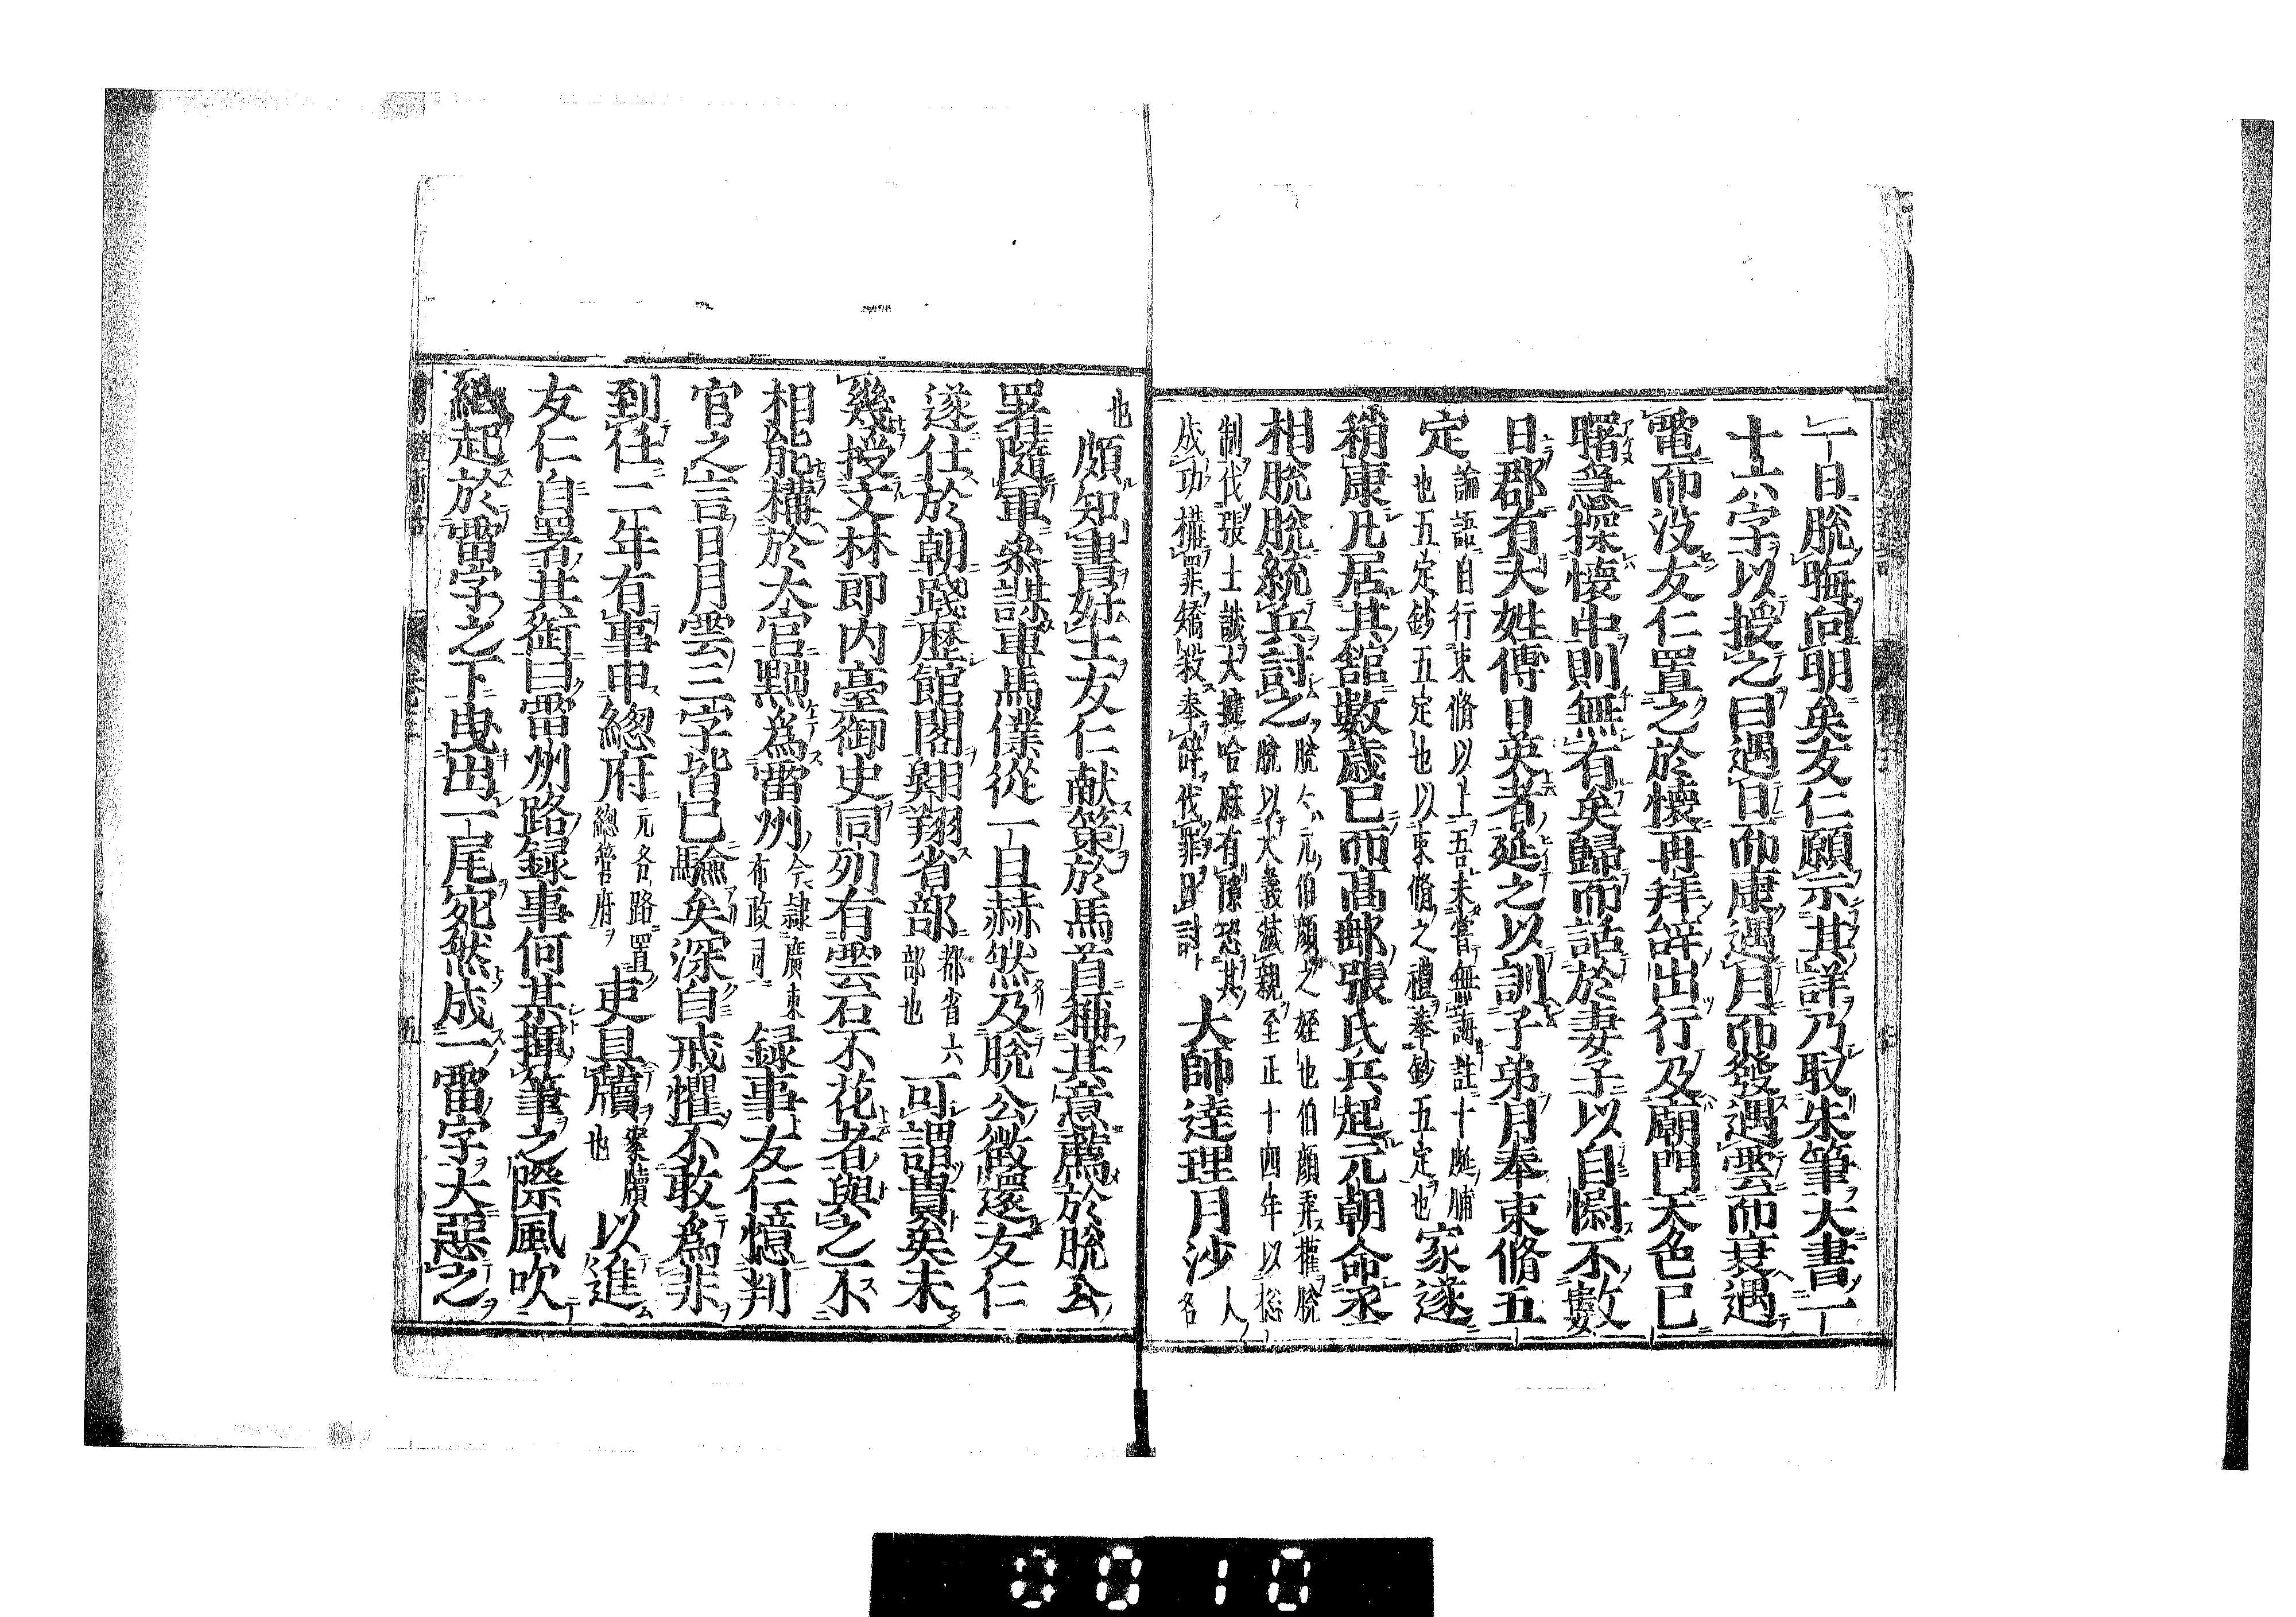 一日脫晦向明矣友仁願示其詳乃取朱筆大書一
十六字以授之曰遇日而康遇月而發遇雲而衰遇
電而没友仁置之於懷再拜辞出行及廟門天色已
曙急探懷中則無有矣歸而話於妻子以自慰不數
日郡有大姓傅日英者延之以訓子弟月奉束脩五
定
論語自行束脩以上吾未嘗無誨註十脡脯
也五定鈔五定也以束脩之禮奉鈔五定也
家遂
稍康凡居其舘數歲已而髙郵張氏兵起元朝命丞
相脫脫統兵討之
脫々元伯顔之姪也伯顔弄權脫
脫以大義滅親至正十四年以捴
制伐張士誠大
哈麻有隙恐其
成功構罪矯殺奉辞伐罪曰討
大師達理月沙
人
名
也
頗知書好士友仁献策於馬首稱其意薦於脫公
署隨軍叅謀車馬僕從一旦赫然及脫公徴還友仁
遂仕於朝踐歴館閣翺翔省部
都省六
部也
可謂貴矣未
幾授文林郎内臺御史同列有雲石不花者與之不
相能構於大官黜為雷州
今隷廣東
布政司
録事友仁憶判
官之言日月雲三字皆已驗矣深自戒懼不敢為非
到任二年有事申總府
元各路置
總管府
吏具牘
案牘
也
以進
友仁自署其銜曰雷州路録事何某揮筆之際風吹
紙起於雷字之下曳出一尾宛然成一電字大惡之
卷三
五
0010